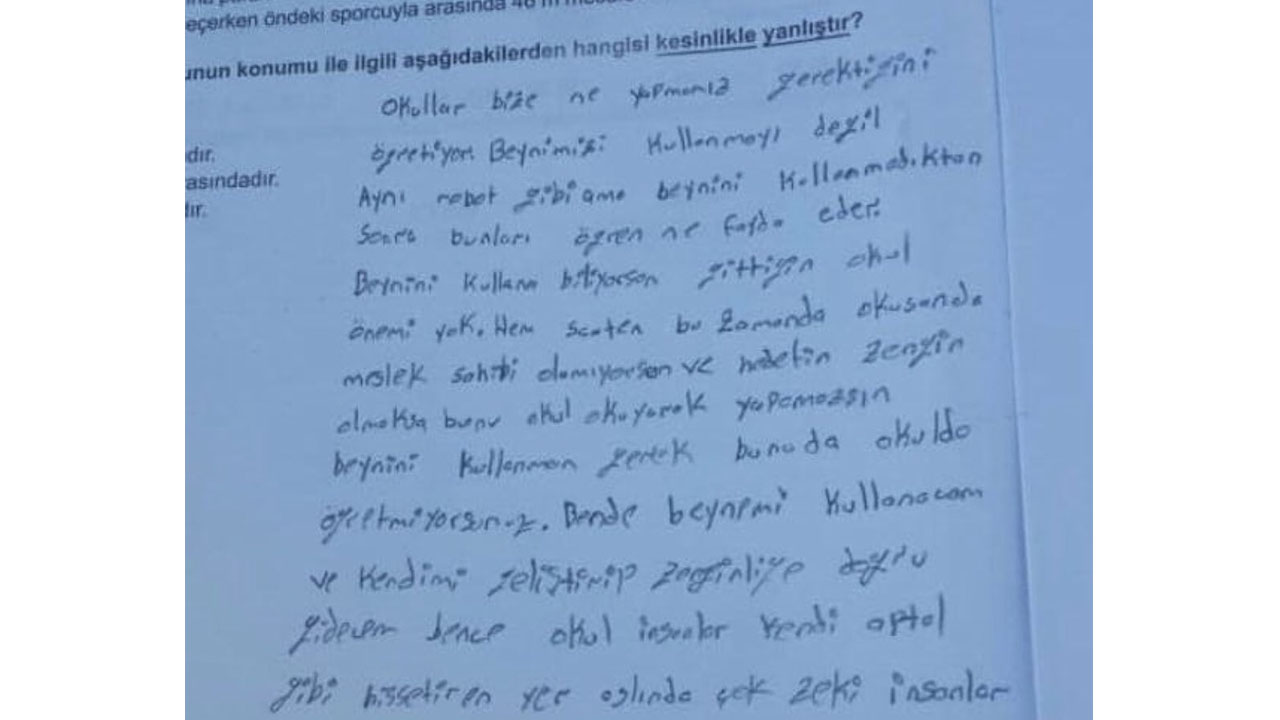 eçerken öndeki sporcuyla arasında 46 m
unun konumu ile ilgili aşağıdakilerden hangisi kesinlikle yanlıştır?
dır.
asındadır.
lır.
Okullar bize ne yapmamız gerektiğini
öğretiyor. Beynimizi Kullanmayı değil
Aynı robot gibi ama beynini Kullanmadıktan
Sonra bunları öğren ne fayda eder.
Beynini Kullana biliyorsan gittiğin okul
önemi yok. Hem zaten bu zamanda okusanda
meslek sahibi olamıyorsan ve hedefin zengin
olmaksa bunu okul okuyarak yapamassın
beynini Kullanman gerek bunuda okulda
öğretmiyorsunuz. Bende beynimi Kullanacam
ve Kendimi geliştirip zenginliğe doğru
gidecem bence okul insanlar Kendi aptal
gibi hissetiren yer aslında çok zeki insanlar